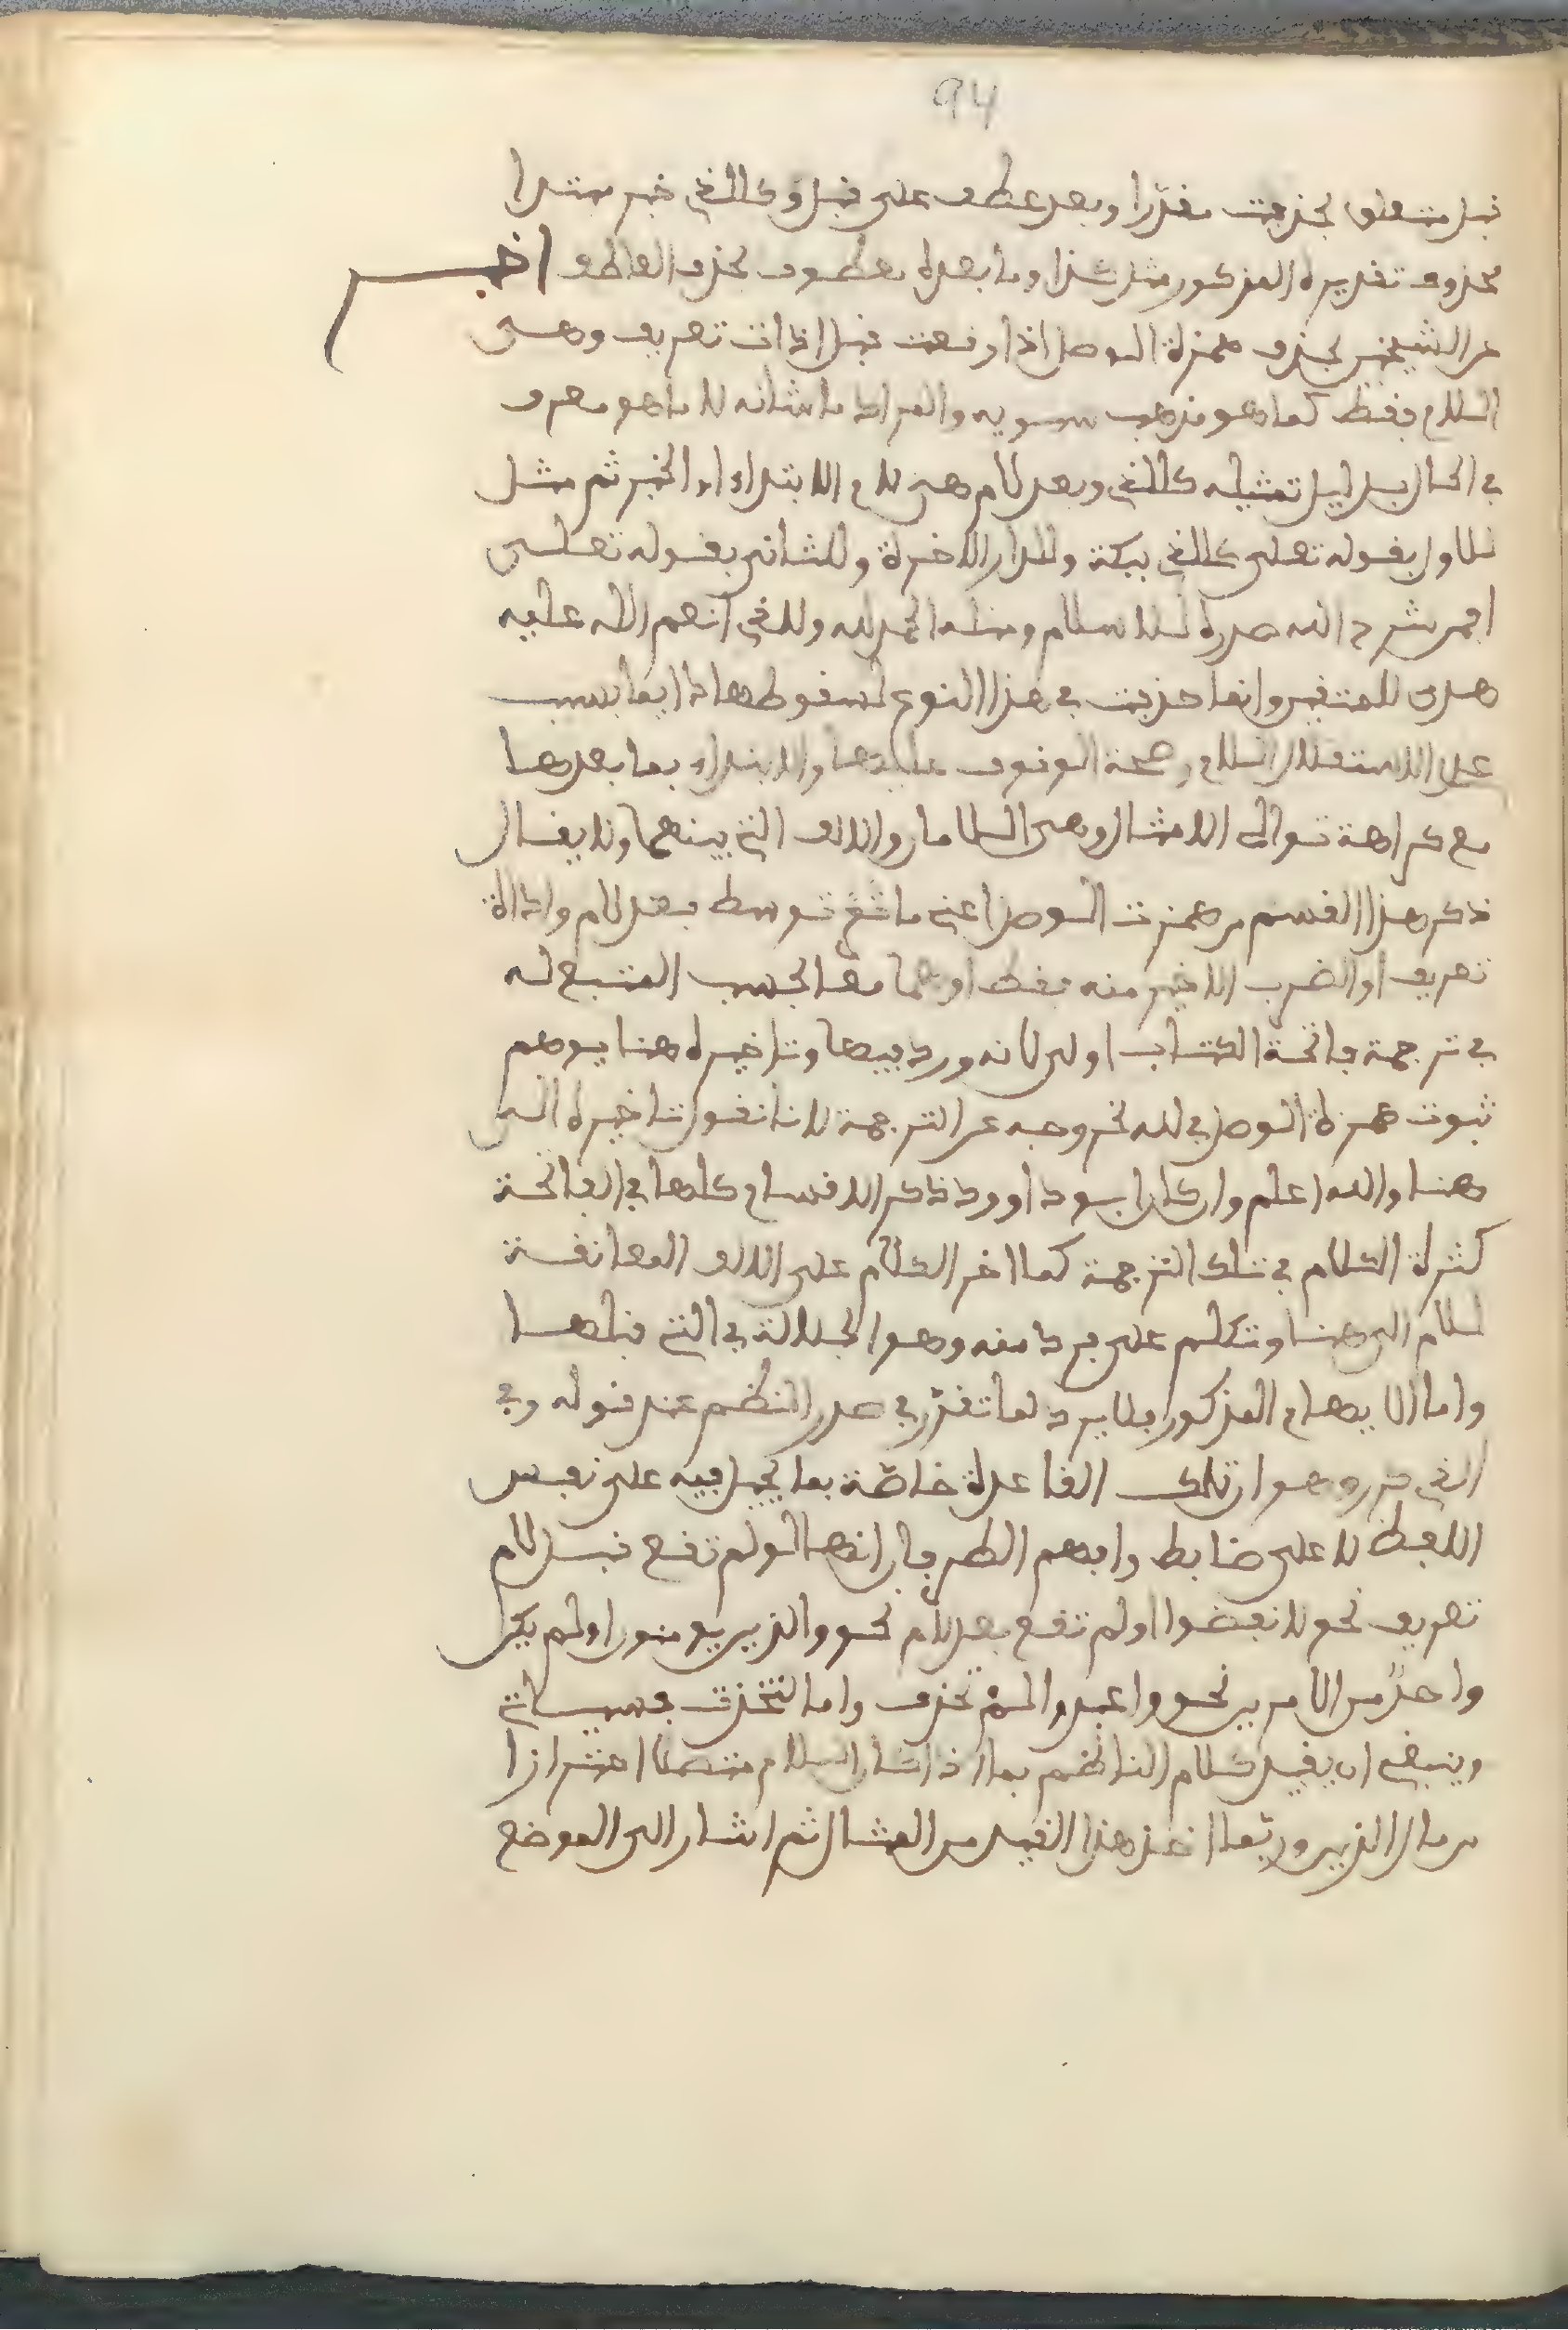 94
قبل متعلق بحذفت مقدرا وبعد عطف على قبل وكالذي خبر مبتدا
محذوف تقديره المذكور مثل كذا وما بعده معطوف بحذف العاطف اخبر
عن الشيخين بحذف همزة الوصل اذا وقعت قبل اداة تعريف وهى
اللام فقط كما هو مذهب سيبويه والمراد ما شانه لا ما هو معرف
في الحال بدليل تمثيله كالذي وبعد لام هى لام الابتداء او الجر ثم مثل
للاول بقوله تعلى للذي ببكة وللدار الاخرة وللثانى بقوله تعلى
افمن شرح الله صدره للاسلام ومثله الحمد لله وللذي انعم الله عليه
هدى للمتقين وانما حذفت في هذا النوع لسقوطها
على استقلال اللام وصحة الوقوف عليها والابتداء بما بعدها
مع كراهة توالى الامثال وهى اللامان والالف التي بينهما ولا يقال
ذكر هذا القسم من همزت الوصل اعنى ما توسط بعد لام واداة
تعريف او الضرب الاخير منه فقط او هما معا المتبع له
في ترجمة فاتحة الكتاب اولى لانه ورد فيها وتاخيره هنا يوهم
ثبوت همزة الوصل في لله لخروجه عن الترجمة لانا نقول تاخيره الى
هنا والله اعلم وان كان ابو داوود ذكر الاقسام كلها في الفاتحة
كثرة الكلام في تلك الترجمة كما اخر الكلام على الالف المعانقة
للام الى هنا وتكلم على فرد منه وهو الجلالة في التي قبلها
واما الايهام المذكور فلا يرد لما تقدر في صدر النظم عند قوله وفي
الذي كرر وهو ان تلك القاعدة خاصة بما يحيل فيه على نفس
اللفظ لا على ضابط وافهم الطرفان انها لو لم تقع قبل لام
تعريف نحو لانفضوا او لم تقع بعد لام نحو والذين يومنون او لم يكن
واحد من الامرين نحو واعبدوا لم تحذف واما لتخذت فسياتي
وينبغي ان يقيد كلام الناظم بما اذا كان اللام متصلا احترازا
من مال الذين وربما اخذ هذا القيد من المثال ثم اشار الى الموضع